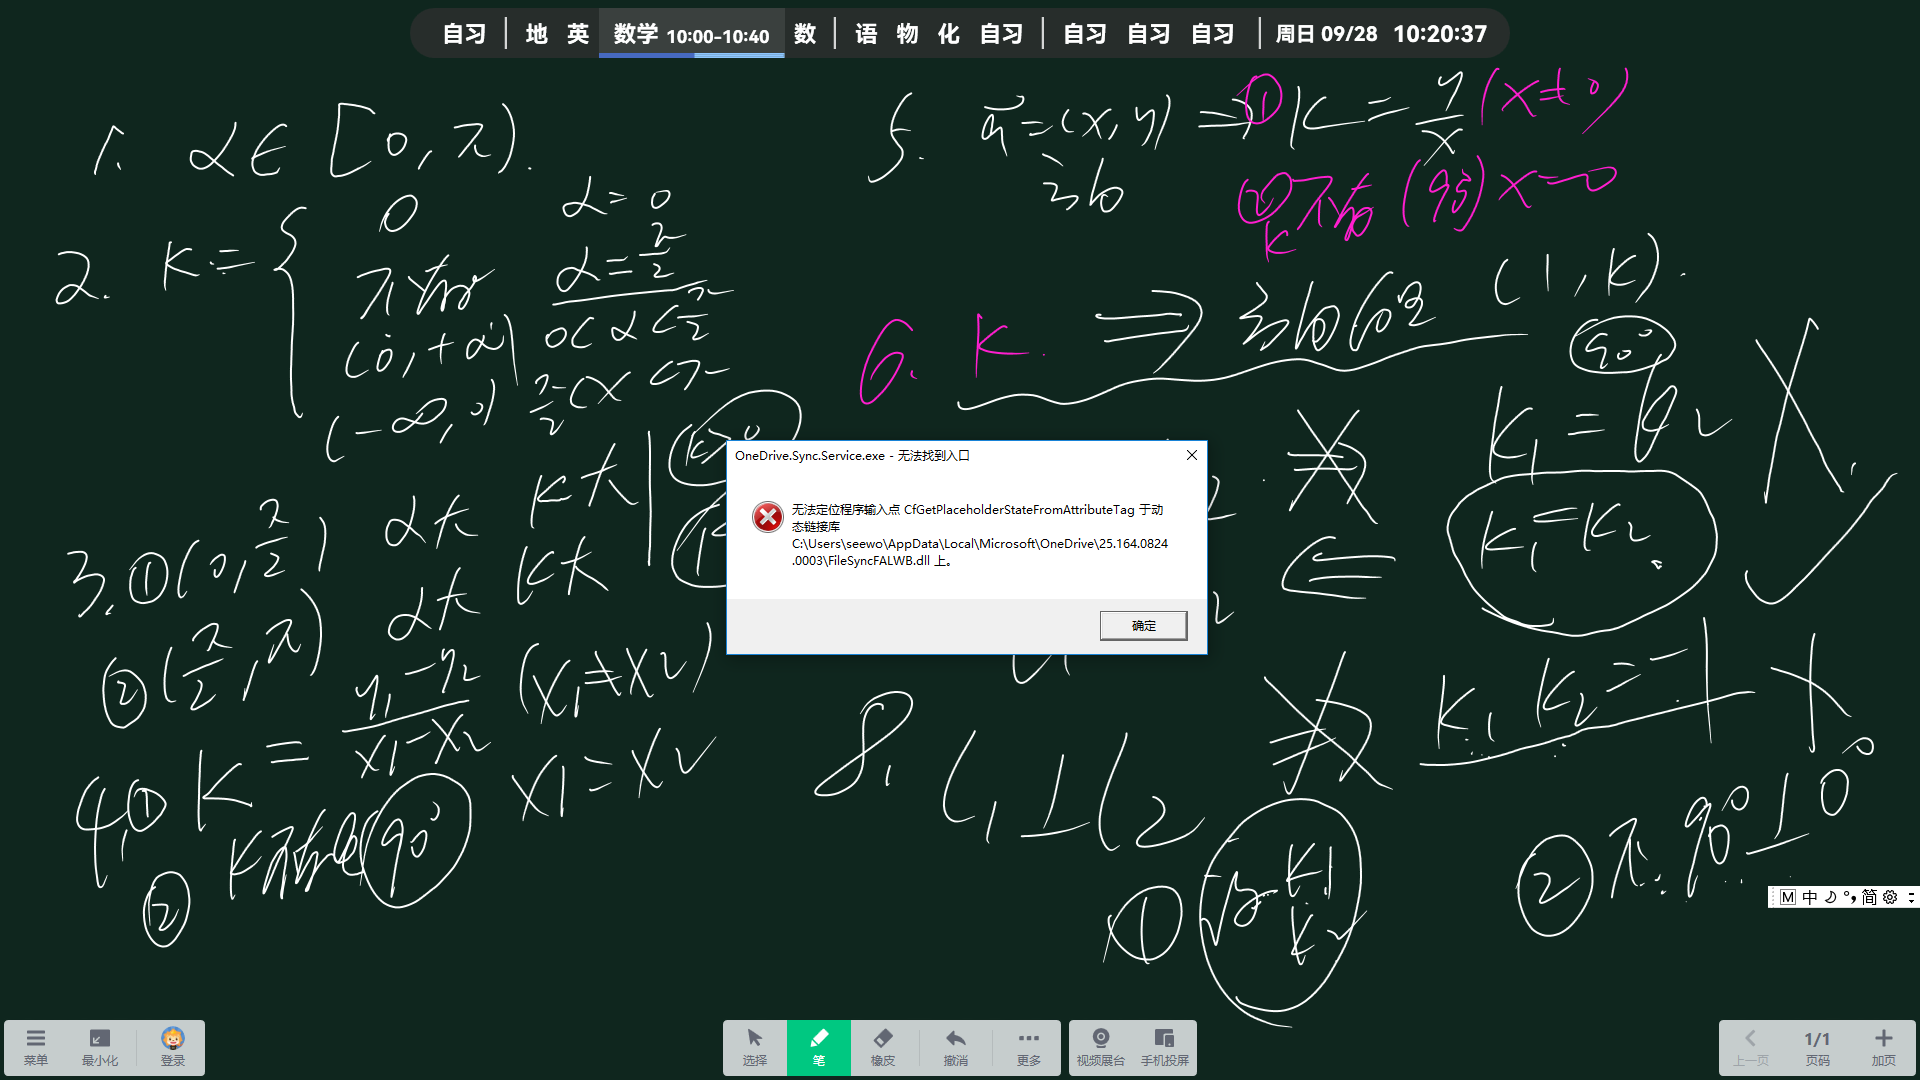 自习 | 地 英 数学 10:00-10:40 数 | 语 物 化 自习 | 自习 自习 自习 | 周日 09/28 10:20:37
1. α∈[0,π).
2. k=
0 α=0
不存在 α=π/2
(0,+∞) 0<α<π/2
(-∞,0) π/2<α<π
3.①(0,π/2) α大 k大
②(π/2,π) α大 k大
4.① k=y₁-y₂/x₁-x₂ (x₁≠x₂)
② k不存在(90° x1=x2
5. a=(x,y) ⇒① k=y/x (x≠0)
方向
②不存在(90°) x=0
k
6. k. ⇒ 方向向量 (1,k).
90°
k₁=k₂ X
k₁=k₂.
OneDrive.Sync.Service.exe - 无法找到入口
无法定位程序输入点 CfGetPlaceholderStateFromAttributeTag 于动
态链接库
C:\Users\seewo\AppData\Local\Microsoft\OneDrive\25.164.0824
.0003\FileSyncFALWB.dll 上。
确定
8. l₁⊥l₂ k₁k₂=-1 X
① k₁
k₂
② 90°⊥0°
M 中 简
菜单
最小化
登录
选择
笔
橡皮
撤消
更多
视频展台
手机投屏
上一页
1/1
页码
加页